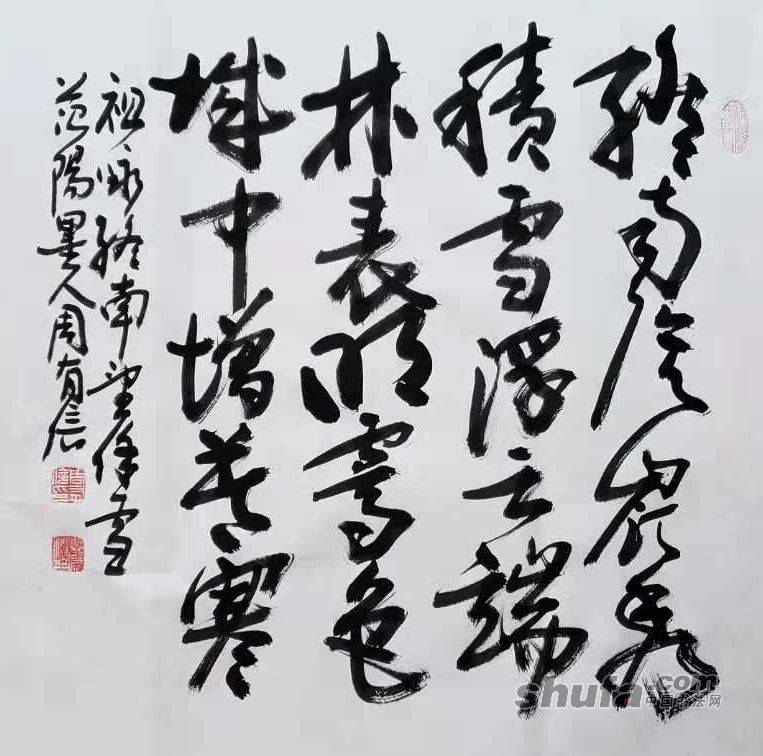 终南阴岭秀
积雪浮云端
林表明霁色
城中增暮寒
祖咏终南望余雪
范阳墨人周有信
shufa.com
中国书法网